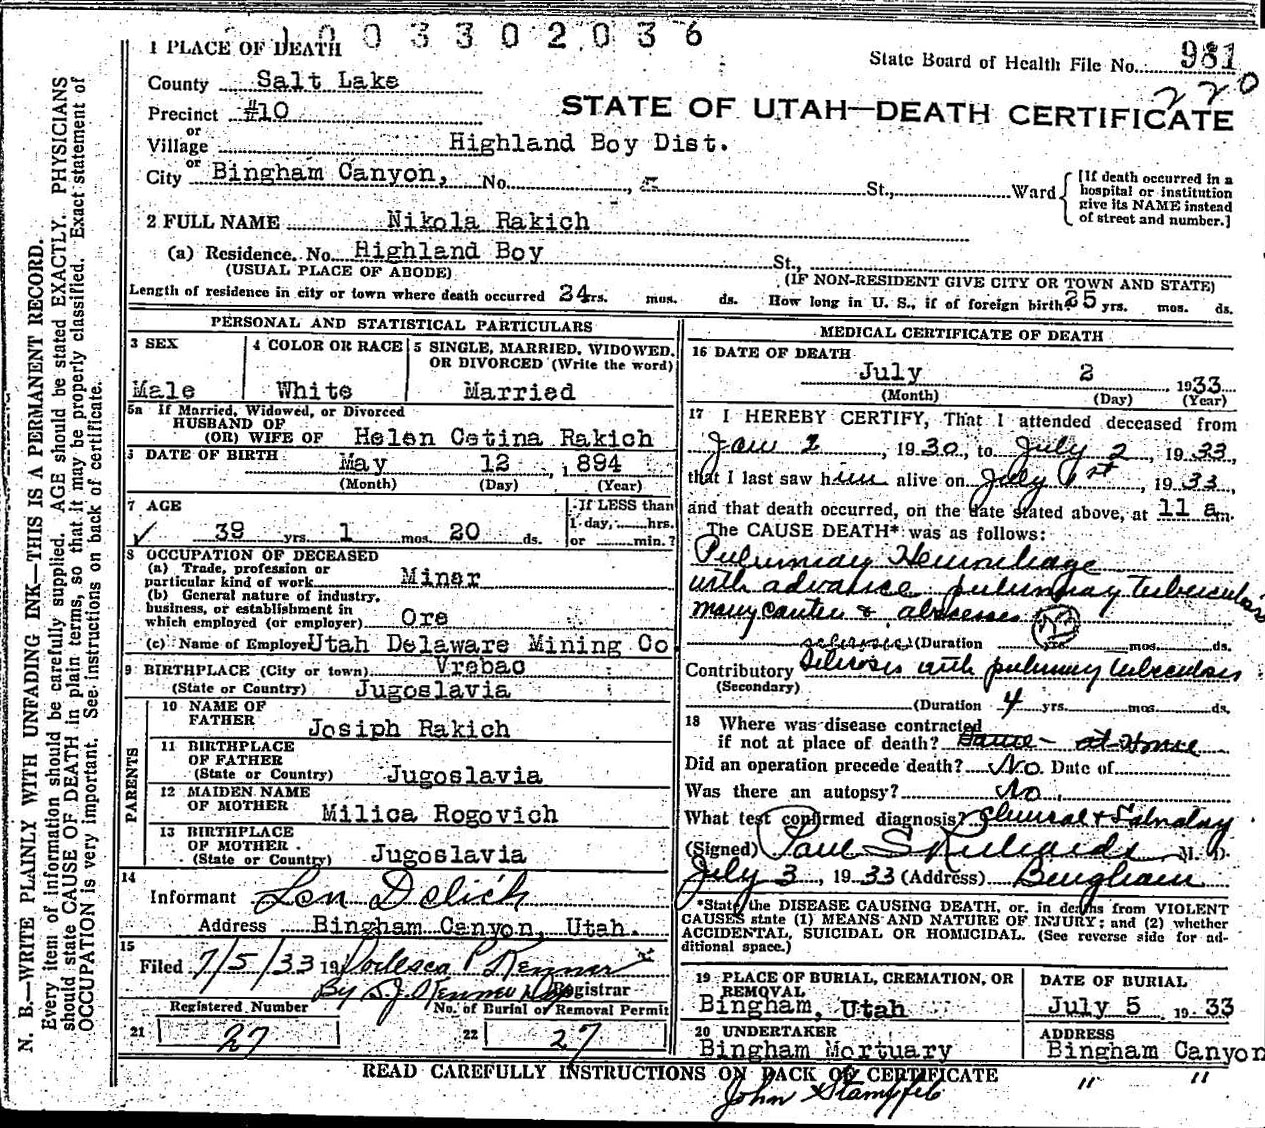 1 0 0 3 3 0 2 0 3 6
1 PLACE OF DEATH
State Board of Health File No. 981
220
County Salt Lake
Precinct #10
STATE OF UTAH—DEATH CERTIFICATE
or
Village Highland Boy Dist.
or
City Bingham Canyon, No. , St., Ward
[If death occurred in a hospital or institution give its NAME instead of street and number.]
2 FULL NAME Nikola Rakich
(a) Residence. No. Highland Boy St.,
(USUAL PLACE OF ABODE) (IF NON-RESIDENT GIVE CITY OR TOWN AND STATE)
Length of residence in city or town where death occurred 24rs. mos. ds. How long in U. S., if of foreign birth? 25 yrs. mos. ds.
PERSONAL AND STATISTICAL PARTICULARS
3 SEX
Male
4 COLOR OR RACE
White
5 SINGLE, MARRIED, WIDOWED, OR DIVORCED (Write the word)
Married
5a If Married, Widowed, or Divorced
HUSBAND OF
(OR) WIFE OF Helen Cetina Rakich
6 DATE OF BIRTH May 12 , 1894
(Month) (Day) (Year)
7 AGE
39 yrs. 1 mos. 20 ds.
If LESS than
1 day, hrs.
or min.?
8 OCCUPATION OF DECEASED
(a) Trade, profession or
particular kind of work Miner
(b) General nature of industry,
business, or establishment in
which employed (or employer) Ore
(c) Name of Employer Utah Delaware Mining Co
9 BIRTHPLACE (City or town) Vrebac
(State or Country) Jugoslavia
PARENTS
10 NAME OF
FATHER Josiph Rakich
11 BIRTHPLACE
OF FATHER
(State or Country) Jugoslavia
12 MAIDEN NAME
OF MOTHER Milica Rogovich
13 BIRTHPLACE
OF MOTHER
(State or Country) Jugoslavia
14
Informant Len Delich
Address Bingham Canyon, Utah.
15
Filed 7/5/33 19 P Kenner
By S.J. Kenner Registrar
Registered Number No. of Burial or Removal Permit
21 27 22 27
MEDICAL CERTIFICATE OF DEATH
16 DATE OF DEATH
July 2 , 1933
(Month) (Day) (Year)
17 I HEREBY CERTIFY, That I attended deceased from
Jan 2 , 1930, to July 2 , 1933,
that I last saw him alive on July 1st , 1933,
and that death occurred, on the date stated above, at 11 a m.
The CAUSE DEATH* was as follows:
Pulmonary Hemorrhage
with advance pulmonary tuberculosis
many cavities & abscesses 23
(Duration yrs. mos. ds.
Contributory Silicosis with pulmonary tuberculosis
(Secondary)
(Duration 4 yrs. mos. ds.
18 Where was disease contracted
if not at place of death? Same - at Home
Did an operation precede death? No. Date of
Was there an autopsy? No.
What test confirmed diagnosis? Clinical &
(Signed) Paul S Richards M. D.
July 3 , 1933 (Address) Bingham
*State the DISEASE CAUSING DEATH, or, in deaths from VIOLENT
CAUSES state (1) MEANS AND NATURE OF INJURY; and (2) whether
ACCIDENTAL, SUICIDAL OR HOMICIDAL. (See reverse side for ad-
ditional space.)
19 PLACE OF BURIAL, CREMATION, OR
REMOVAL
Bingham, Utah
DATE OF BURIAL
July 5 1933
20 UNDERTAKER
Bingham Mortuary
ADDRESS
Bingham Canyon
READ CAREFULLY INSTRUCTIONS ON BACK OF CERTIFICATE
John Stampfel " "
N. B.—WRITE PLAINLY WITH UNFADING INK—THIS IS A PERMANENT RECORD.
Every item of information should be carefully supplied. AGE should be stated EXACTLY. PHYSICIANS
should state CAUSE OF DEATH in plain terms, so that it may be properly classified. Exact statement of
OCCUPATION is very important. See instructions on back of certificate.